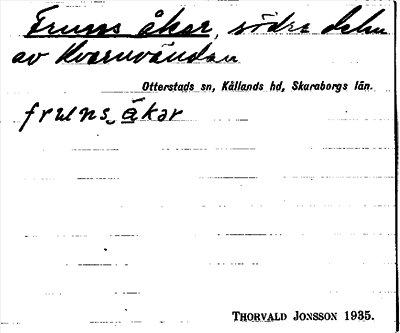 Fruns åker, södra delen
av Kvarnvändan
Otterstads sn, Kållands hd, Skaraborgs län.
fruns_åkər
THORVALD JONSSON 1935.